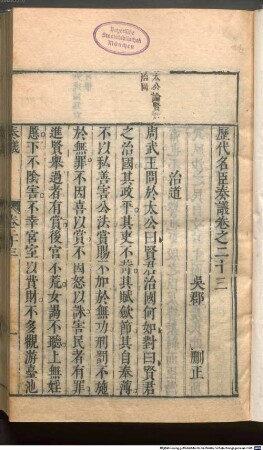 Regia
Bibliotheca
Monacensis
太公論賢君
治國
歷代名臣奏議卷之二十三
吳郡
刪正
治道
周武王問於太公曰賢君治國何如對曰賢君
之治國其政平其吏不苛其賦斂節其自奉薄
不以私善害公法賞賜不加於無功刑罰不施
於無罪不因喜以賞不因怒以誅害民者有罪
進賢舉過者有賞後宮不荒女謁不聽上無婬
慝下不陰害不幸宮室以費財不多觀游臺池
奏議
卷二十三